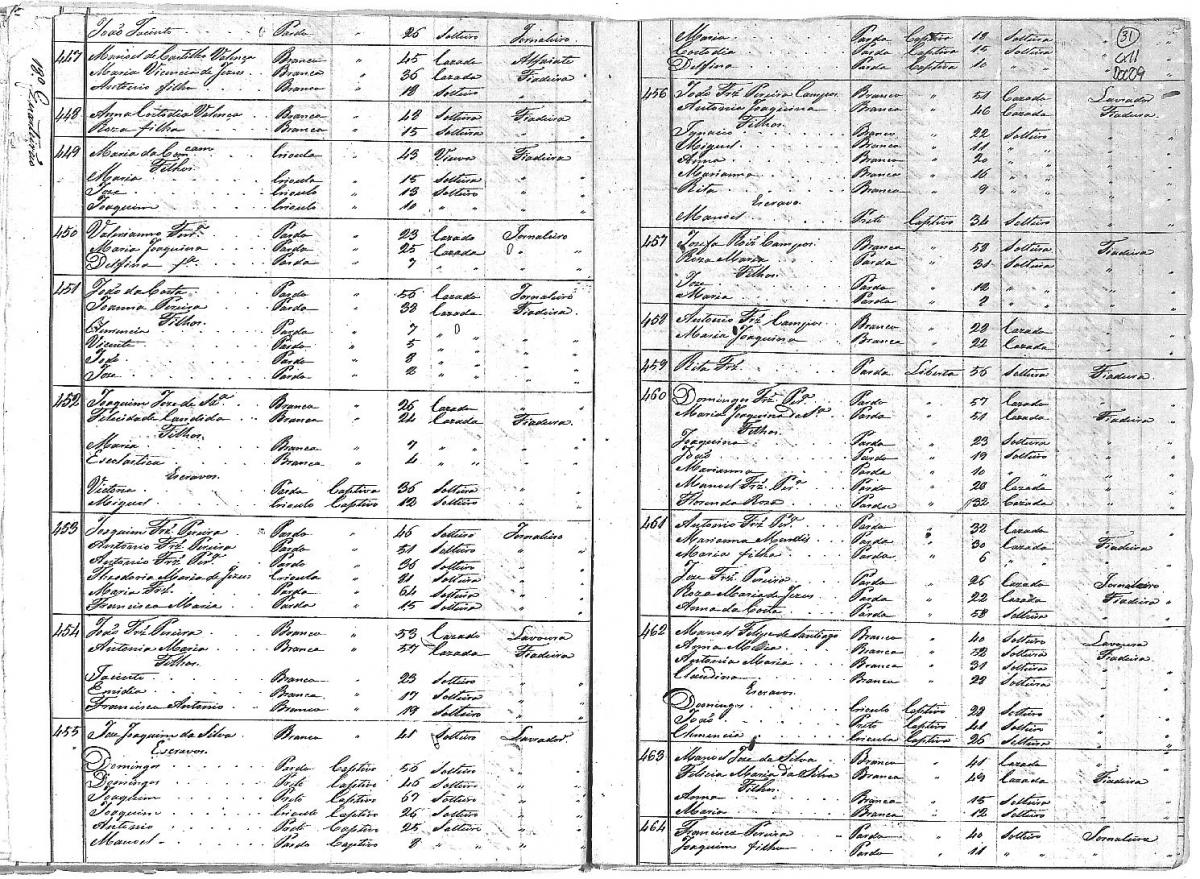 18º Quarteirão
João Jacinto Pardo " 26 Solteiro Jornaleiro
447 Manoel de Castilho Valença Branco " 45 Cazado Alfaiate
Maria Vicencia de Jezus Branca " 36 Cazada Fiadeira
Antonio filho Branco " 18 Solteiro "
448 Anna Custodia Valença Branca " 48 Solteira Fiadeira
Roza filha Branca " 15 Solteira "
449 Maria da Crioula " 43 Viuva Fiadeira
Filhos
Maria Crioula " 15 Solteira "
Joze Crioulo " 13 Solteiro "
Joaquim Crioulo " 10 " "
450 Valerianno Pardo " 23 Cazado Jornaleiro
Maria Joaquina Parda " 25 Cazada "
Delfina fª Parda " 7 " "
451 João da Costa Pardo " 56 Cazado Jornaleiro
Joanna Pereira Parda " 38 Cazada Fiadeira
Filhos
Clemencia Parda " 7 " "
Vicente Pardo " 5 " "
João Pardo " 8 " "
Joze Pardo " 2 " "
452 Joaquim Joze de Branco " 26 Cazado "
Felicidade Candida Branca " 24 Cazada Fiadeira
Filhos
Maria Branca " 7 " "
Escolastica Branca " 4 " "
Escravos
Victoria Parda Captiva 36 Solteira "
Miguel Crioulo Captivo 12 Solteiro "
453 Joaquim Frz Pereira Pardo " 46 Solteiro Jornaleiro
Antonio Frz Pereira Pardo " 51 Solteiro "
Antonio Frz Perª Pardo " 36 Solteiro "
Theodoria Maria de Jezus Crioula " 21 Solteira "
Maria Frz Parda " 64 Solteira "
Francisca Maria Parda " 15 Solteira "
454 João Frz Pereira Branco " 53 Cazado Lavoura
Antonia Maria Branca " 57 Cazada Fiadeira
Filhos
Jacinto Branco " 23 Solteiro "
Emidia Branca " 17 Solteira "
Francisco Antonio Branco " 19 Solteiro "
455 Joze Joaquim da Silva Branco " 41 Solteiro Lavrador
Escravos
Domingos Pardo Captivo 56 Solteiro
Domingos Preto Captivo 46 Solteiro
Joaquim Preto Captivo 67 Solteiro
Joaquim Crioulo Captivo 26 Solteiro
Antonio Preto Captivo 25 Solteiro
Manoel Pardo Captivo 8 "
31
Maria Parda Captiva 19 Solteira "
Custodia Parda Captiva 15 Solteira "
Delfina Parda Captiva 10 " "
456 João Frz Pereira Campos Branco " 51 Cazado Lavrador
Antonia Joaquina Branca " 46 Cazada Fiadeira
Filhos
Ignacio Branco " 22 Solteiro "
Miguel Branco " 11 " "
Anna Branca " 20 " "
Marianna Branca " 16 " "
Rita Branca " 9 " "
Escravo
Manoel Preto Captivo 34 Solteiro "
457 Jozefa Roiz Campos Branca " 59 Solteira Fiadeira
Roza Maria Parda " 31 Solteira "
Filhos
Joze Pardo " 12 " "
Maria Parda " 2 " "
458 Antonio Frz Campos Branco " 28 Cazado
Maria Joaquina Branca " 22 Cazada
459 Rita Frz Parda Liberta 56 Solteira Fiadeira
460 Domingos Frz Pardo " 57 Cazado "
Maria Joaquina de Parda " 51 Cazada Fiadeira
Filhos
Joaquina Parda " 23 Solteira "
João Pardo " 19 Solteiro "
Marianna Parda " 10 " "
Manoel Frz Perª Pardo " 28 Cazado "
Florinda Roza Parda " 32 Cazada "
461 Antonio Frz Pardo " 32 Cazado "
Marianna Mendes Parda " 30 Cazada Fiadeira
Maria filha Parda " 6 " "
Joze Frz Pereira Pardo " 26 Cazado Jornaleiro
Roza Maria de Jezus Parda " 22 Cazada Fiadeira
Anna da Costa Parda " 58 Solteira "
462 Manoel Felipe de Santiago Branco " 40 Solteiro Lavoura
Anna Maria Branca " 32 Solteira Fiadeira
Antonia Maria Branca " 31 Solteira "
Claudina Branca " 28 Solteira "
Escravos
Domingos Crioulo Captivo 28 Solteiro "
João Preto Captivo 41 Solteiro "
Clemencia Crioula Captiva 26 Solteira "
463 Manoel Joze da Silva Branco " 41 Cazado "
Felicia Maria da Silva Branca " 49 Cazada Fiadeira
Filhos
Anna Branca " 15 Solteira "
Maria Branca " 12 Solteira "
464 Francisca Pereira Parda " 40 Solteira Jornaleira
Joaquim filho Pardo " 11 " "